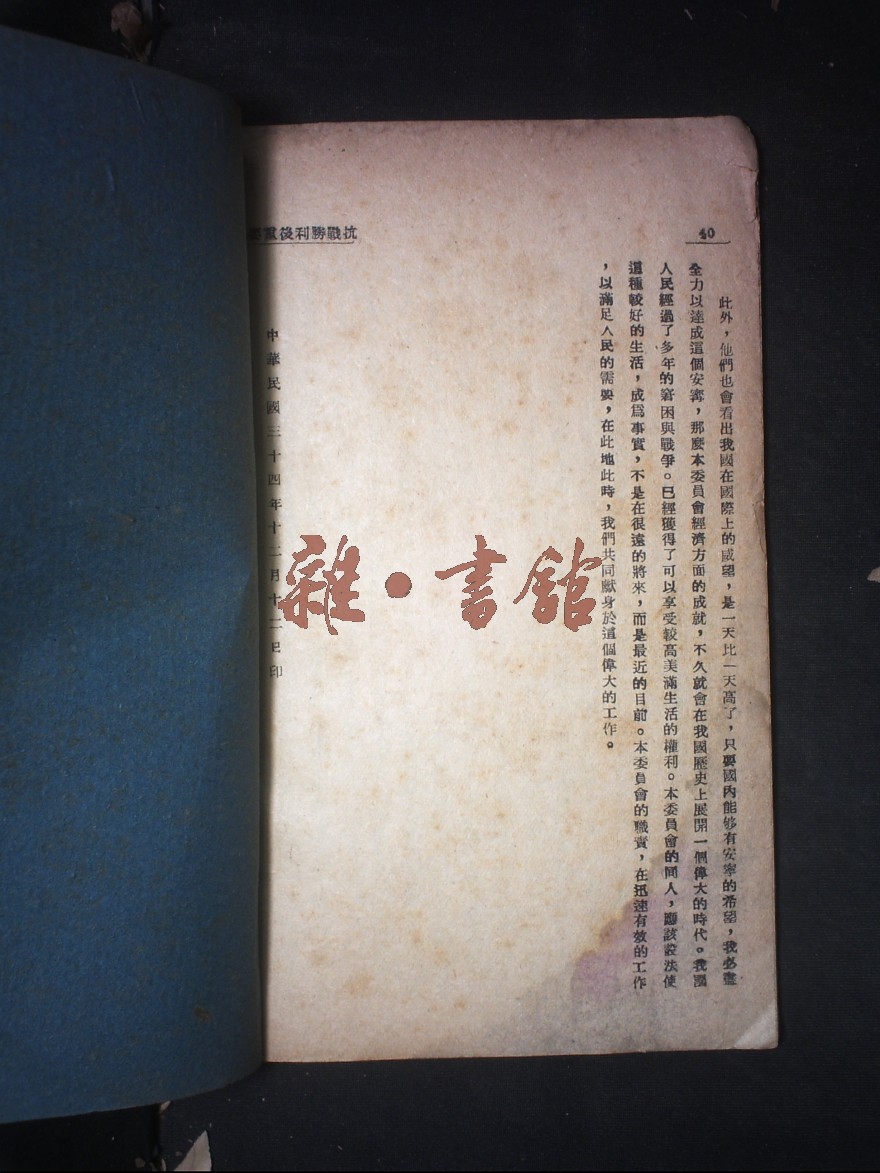 40
抗戰勝利後重
此外，他們也會看出我國在國際上的威望，是一天比一天高了，只要國內能够有安寧的希望，我必盡
全力以達成這個安寧，那麼本委員會經濟方面的成就，不久就會在我國歷史上展開一個偉大的時代。我國
人民經過了多年的窘困與戰爭。已經獲得了可以享受較高美滿生活的權利。本委員會的同人，應該設法使
這種較好的生活，成爲事實，不是在很遠的將來，而是最近的目前。本委員會的職責，在迅速有效的工作
，以滿足人民的需要，在此地此時，我們共同獻身於這個偉大的工作。
中華民國三十四年十二月十二日印
雜·書館